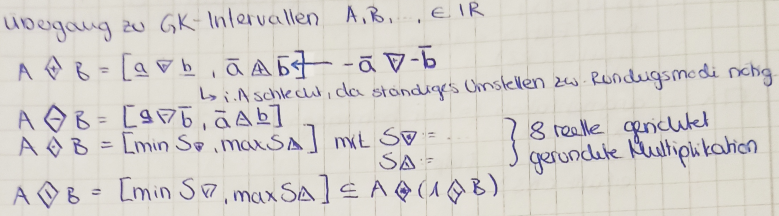 Übergang zu GK-Intervallen A, B, ..., ∈ IR
A ◇+ B = [a̲ ▽+ b̲, a̅ △+ b̅] ← -a̅ ▽- b̅
↳ i.A schlecht, da ständiges Umstellen zw. Rundugsmodi nötig
A ◇- B = [a̲ ▽- b̅, a̅ △- b̲]
A ◇· B = [min S▽, max S△] mit S▽ = ... } 8 reelle gerichtet
S△ = } gerundete Multiplikation
A ◇/ B = [min S▽, max S△] ⊆ A ◇· (1 ◇/ B)